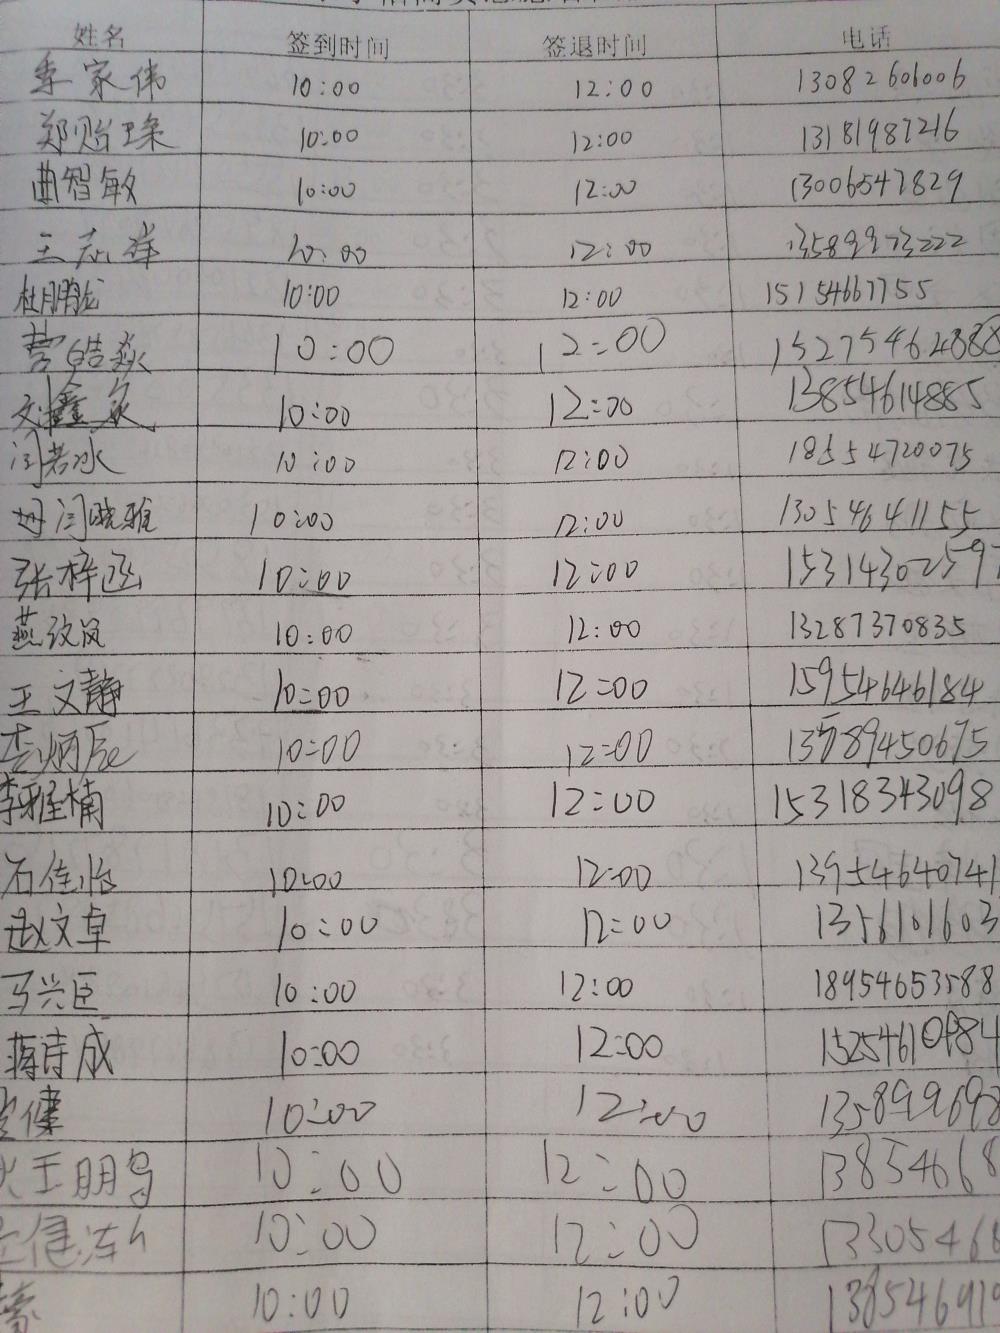 姓名 签到时间 签退时间 电话
李家伟 10:00 12:00 13082606006
郑贻琛 10:00 12:00 13181987216
曲智敏 10:00 12:00 13006547829
王志 10:00 12:00 13589973222
杜鹏龙 10:00 12:00 15154667755
皓焱 10:00 12:00
刘鑫 10:00 12:00 13854614885
闫若冰 10:00 12:00 18554720075
闫晓雅 10:00 12:00 13054641155
张梓函 10:00 12:00 15314302597
燕 10:00 12:00 13287370835
王文静 10:00 12:00 15954646184
李炳辰 10:00 12:00 13589450675
李雅楠 10:00 12:00 15318343098
石佳怡 10:00 12:00 13954640741
赵文卓 10:00 12:00 1356101603
马兴臣 10:00 12:00 18954653588
蒋诗成 10:00 12:00
健 10:00 12:00 135899698
王朋 10:00 12:00 13854668
健 10:00 12:00 1330546
10:00 12:00 1385469